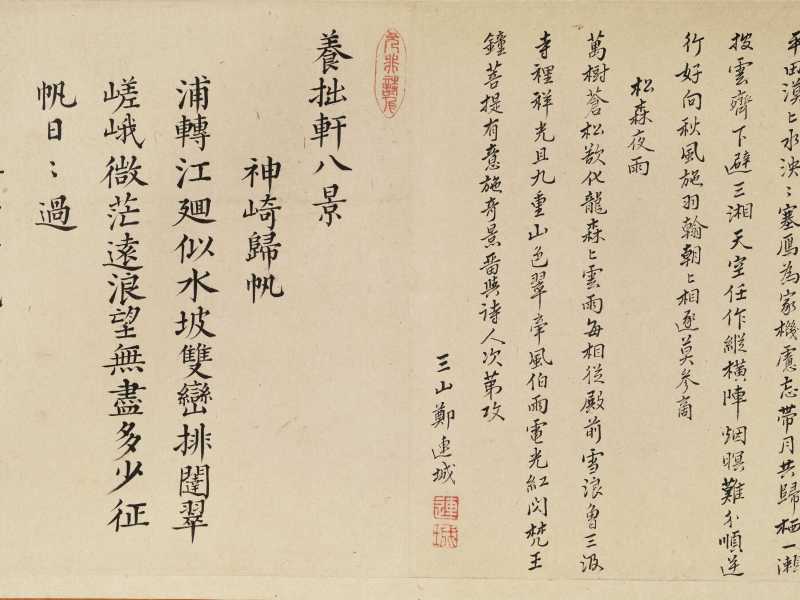 平田漠〻水泱〻塞鴈為家機慮忘帶月共歸栖一瀬
披雲齊下避三湘天空任作縱橫陣烟暝難分順逆
行好向秋風施羽翰朝〻相逐莫參商
松森夜雨
萬樹蒼松欲化龍森〻雲雨每相從殿前雪浪魯三汲
寺裡祥光且九重山色翠牽風伯雨電光紅閃梵王
鐘菩提有意施奇景畱與詩人次第攻
三山鄭連城
連城
養拙軒八景
神崎歸帆
浦轉江廻似水坡雙巒排闥翠
嵯峨微茫遠浪望無盡多少征
帆日〻過